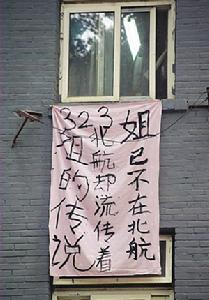 姐已不在北航
北航却流传着
323
姐的传说